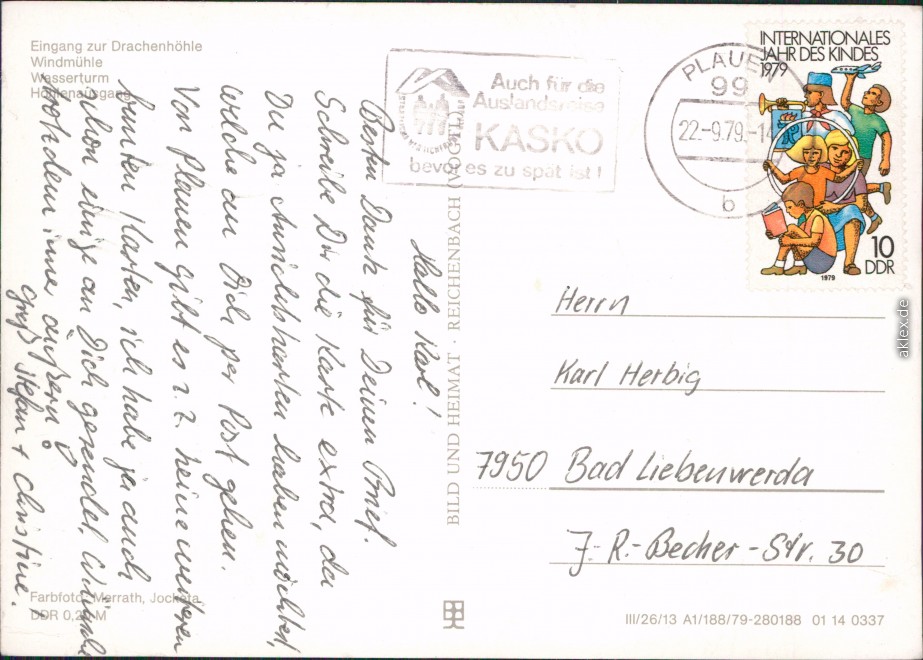 Eingang zur Drachenhöhle
Windmühle
Wasserturm
Höhlenausgang
Auch für die
Auslandsreise
KASKO
bevor es zu spät ist!
PLAUEN
99
22.-9.79.-14
b
INTERNATIONALES
JAHR DES KINDES
1979
10
DDR
1979
Hallo Karl!
Besten Dank für Deinen Brief.
Schreibe Dir die Karte extra, da
Du ja Ansichtskarten haben möchtest,
welche an Dich per Post gehen.
Von Plauen gibt es z. Z. keine weiteren
bunten Karten, ich habe ja auch
schon einige an Dich gesendet. Wünsche
trotzdem immer äußern!
Gruß Stefan + Christine.
BILD UND HEIMAT · REICHENBACH (VOGTL)
Herrn
Karl Herbig
7950 Bad Liebenwerda
J.-R.-Becher-Str. 30
Farbfoto: Merrath, Jocketa
DDR 0,20 M
III/26/13 A1/188/79-280188 01 14 0337
aklex.de